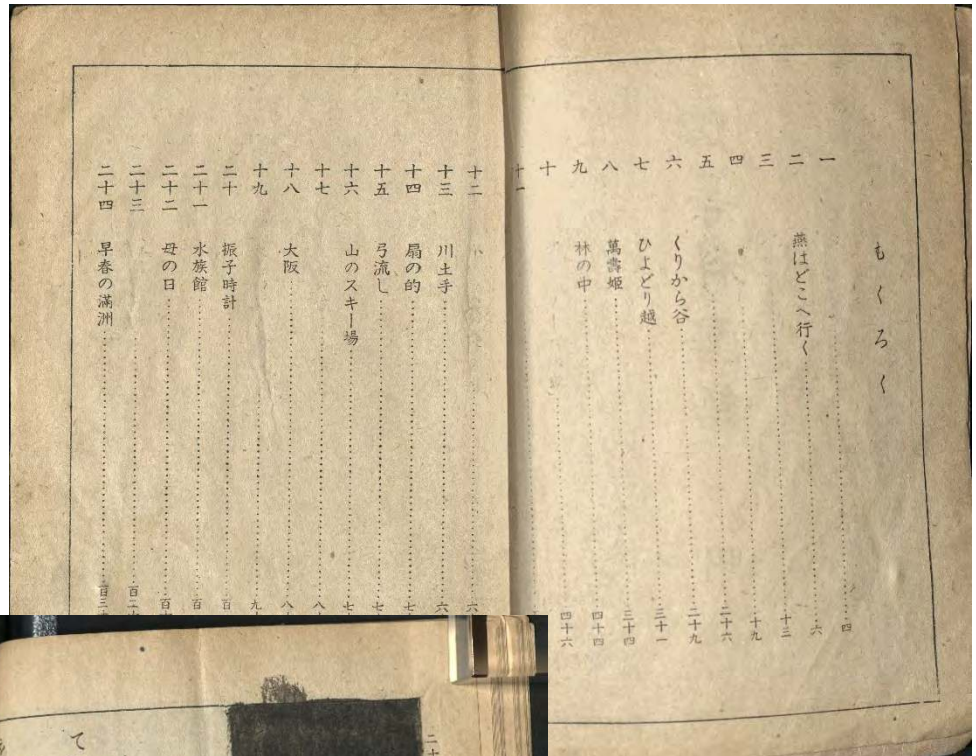 もくろく
一……四
二 燕はどこへ行く……六
三……十三
四……十九
五……二十六
六 くりから谷……二十九
七 ひよどり越……三十一
八 萬壽姫……三十四
九 林の中……四十四
十……四十六
十一
十二……六
十三 川土手……六
十四 扇の的……七
十五 弓流し……七
十六 山のスキー場……七
十七……八
十八 大阪……八
十九……九
二十 振子時計……百
二十一 水族館……百
二十二 母の日……百
二十三……百二
二十四 早春の滿洲……百三
て